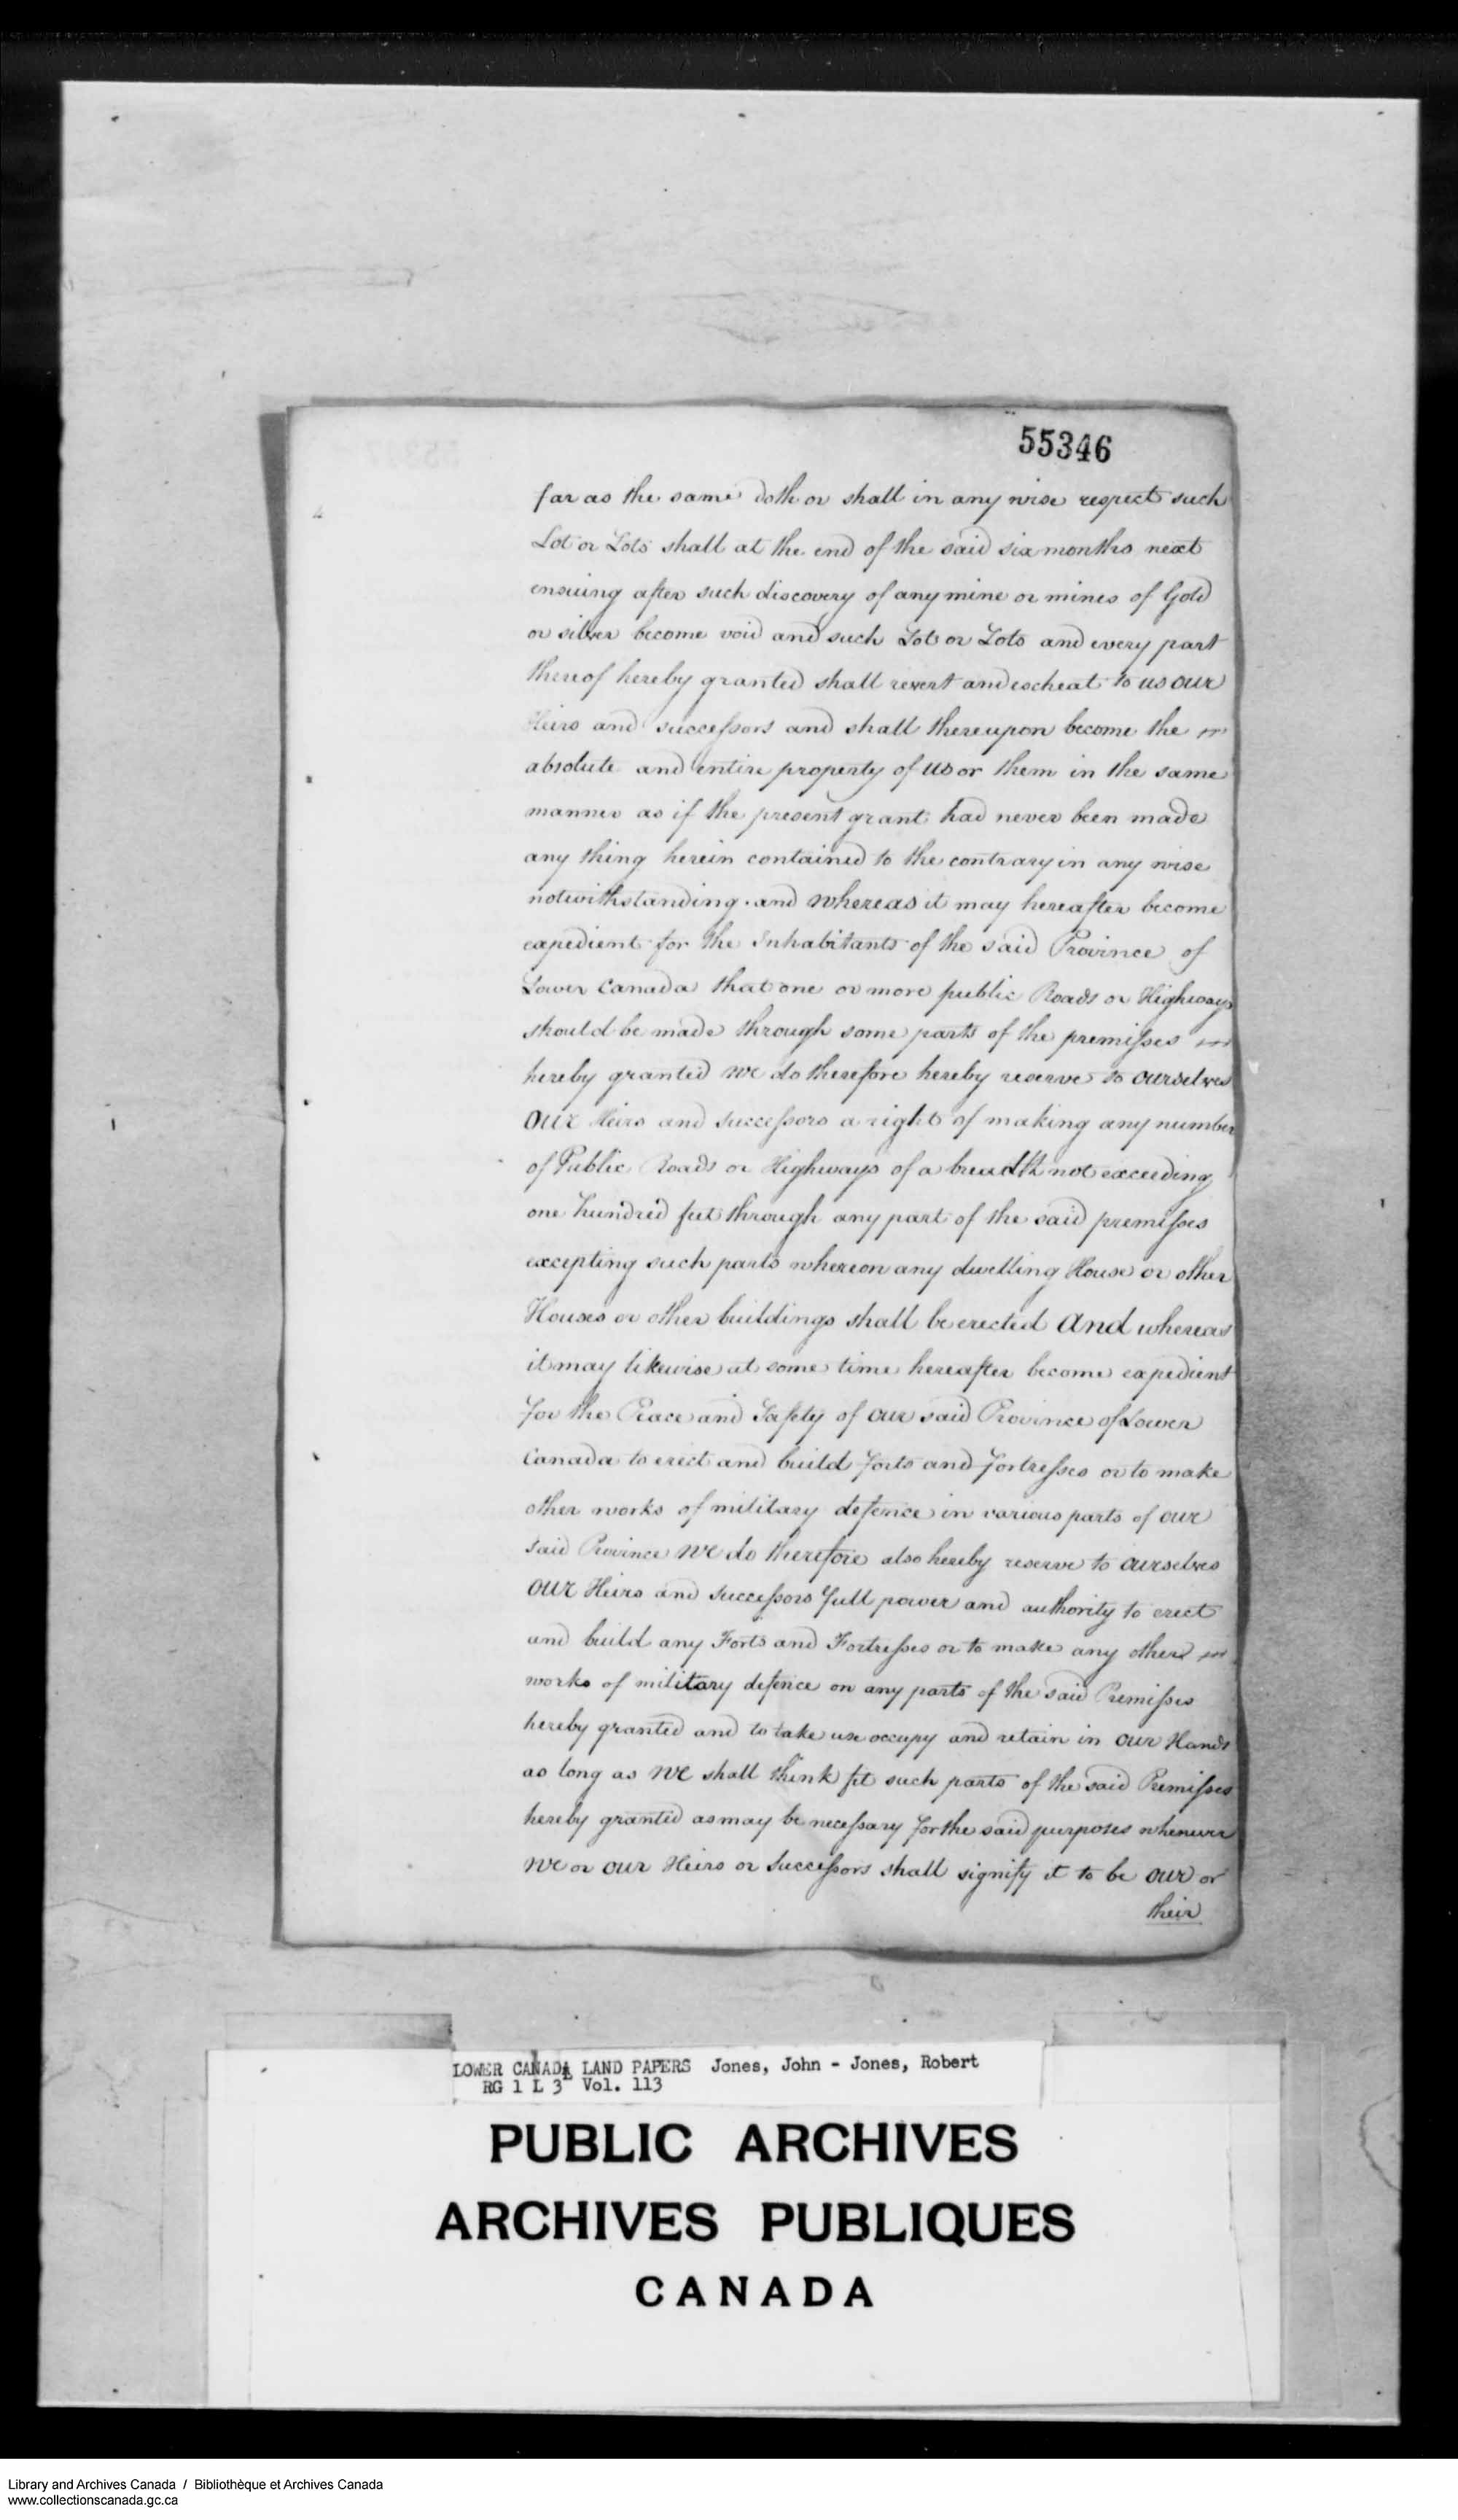 55346
far as the same doth or shall in any wise respect such
Lot or Lots shall at the end of the said six months next
ensuing after such discovery of any mine or mines of Gold
or silver become void and such Lot or Lots and every part
thereof hereby granted shall revert and escheat to us our
Heirs and successors and shall thereupon become the
absolute and entire property of us or them in the same
manner as if the present grant had never been made
any thing herein contained to the contrary in any wise
notwithstanding. and whereas it may hereafter become
expedient for the Inhabitants of the said Province of
Lower Canada that one or more public Roads or Highways
should be made through some parts of the premisses
hereby granted We do therefore hereby reserve to ourselves
our Heirs and successors a right of making any number
of Public Roads or Highways of a breadth not exceeding
one hundred feet through any part of the said premisses
excepting such parts whereon any dwelling House or other
Houses or other buildings shall be erected And whereas
it may likewise at some time hereafter become expedient
for the Peace and Safety of our said Province of Lower
Canada to erect and build forts and fortresses or to make
other works of military defence in various parts of our
said Province We do therefore also hereby reserve to ourselves
our Heirs and successors full power and authority to erect
and build any Forts and Fortresses or to make any other
works of military defence on any parts of the said Premisses
hereby granted and to take use occupy and retain in our Hands
as long as We shall think fit such parts of the said Premisses
hereby granted as may be necessary for the said purposes whenever
We or our Heirs or Successors shall signify it to be our or
their
LOWER CANADA LAND PAPERS Jones, John - Jones, Robert
RG 1 L 3 Vol. 113
PUBLIC ARCHIVES
ARCHIVES PUBLIQUES
CANADA
Library and Archives Canada / Bibliothèque et Archives Canada
www.collectionscanada.gc.ca